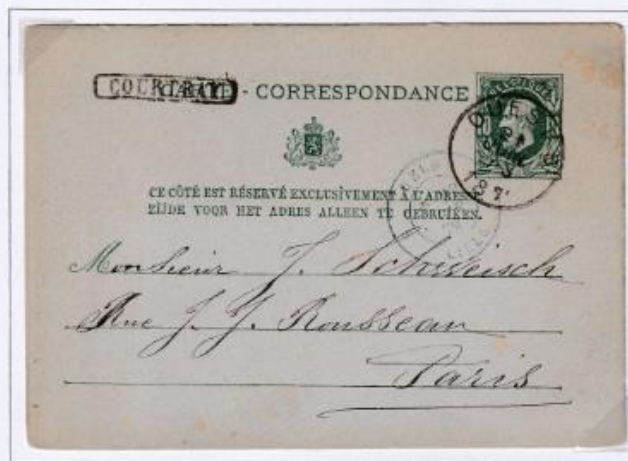 COURTRAI - CORRESPONDANCE
CE CÔTÉ EST RÉSERVÉ EXCLUSIVEMENT À L'ADRESSE
ZIJDE VOOR HET ADRES ALLEEN TE GEBRUIKEN.
Monsieur J. Schweisch
Rue J. J. Rousseau
Paris